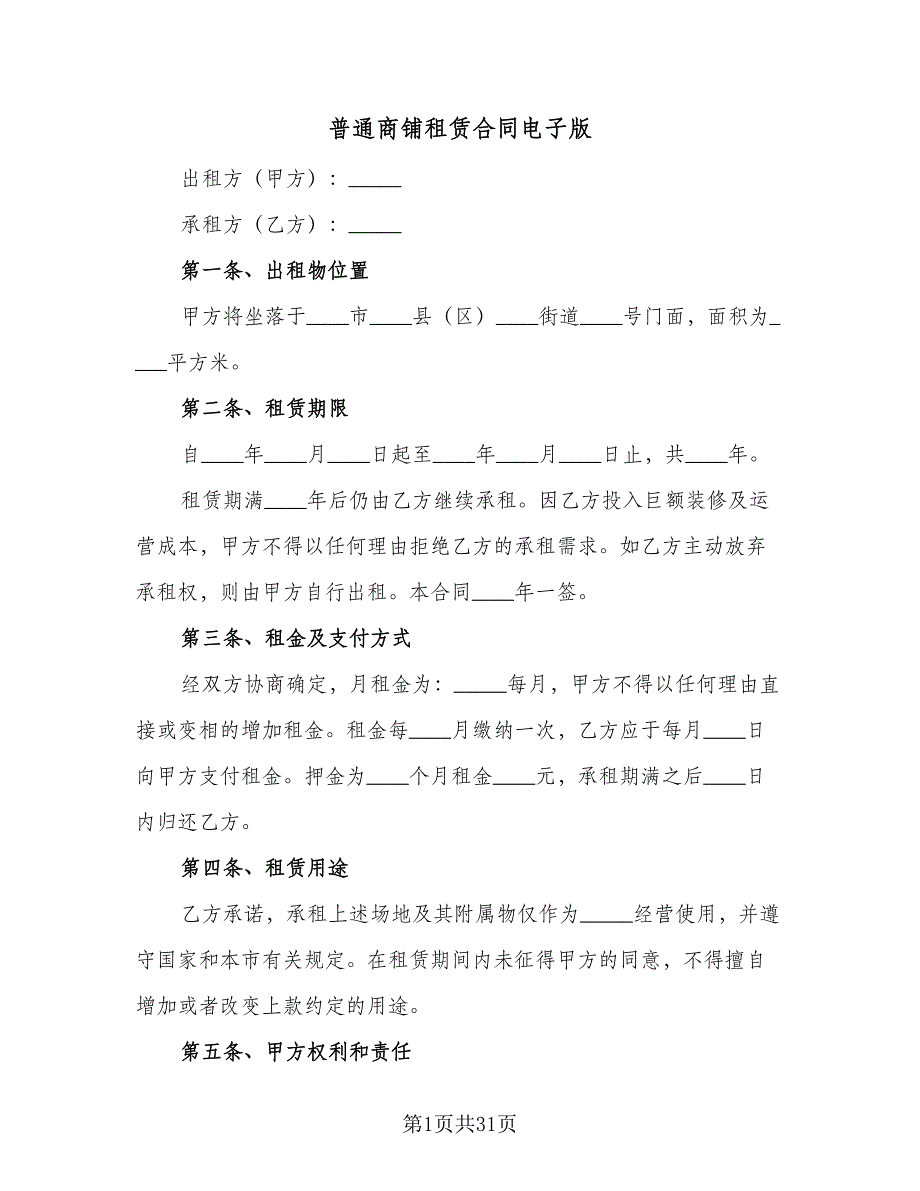 普通商铺租赁合同电子版
出租方（甲方）：_____
承租方（乙方）：_____
第一条、出租物位置
甲方将坐落于____市____县（区）____街道____号门面，面积为_
___平方米。
第二条、租赁期限
自____年____月____日起至____年____月____日止，共____年。
租赁期满____年后仍由乙方继续承租。因乙方投入巨额装修及运
营成本，甲方不得以任何理由拒绝乙方的承租需求。如乙方主动放弃
承租权，则由甲方自行出租。本合同____年一签。
第三条、租金及支付方式
经双方协商确定，月租金为：_____每月，甲方不得以任何理由直
接或变相的增加租金。租金每____月缴纳一次，乙方应于每月____日
向甲方支付租金。押金为____个月租金____元，承租期满之后____日
内归还乙方。
第四条、租赁用途
乙方承诺，承租上述场地及其附属物仅作为_____经营使用，并遵
守国家和本市有关规定。在租赁期间内未征得甲方的同意，不得擅自
增加或者改变上款约定的用途。
第五条、甲方权利和责任
第1页共31页